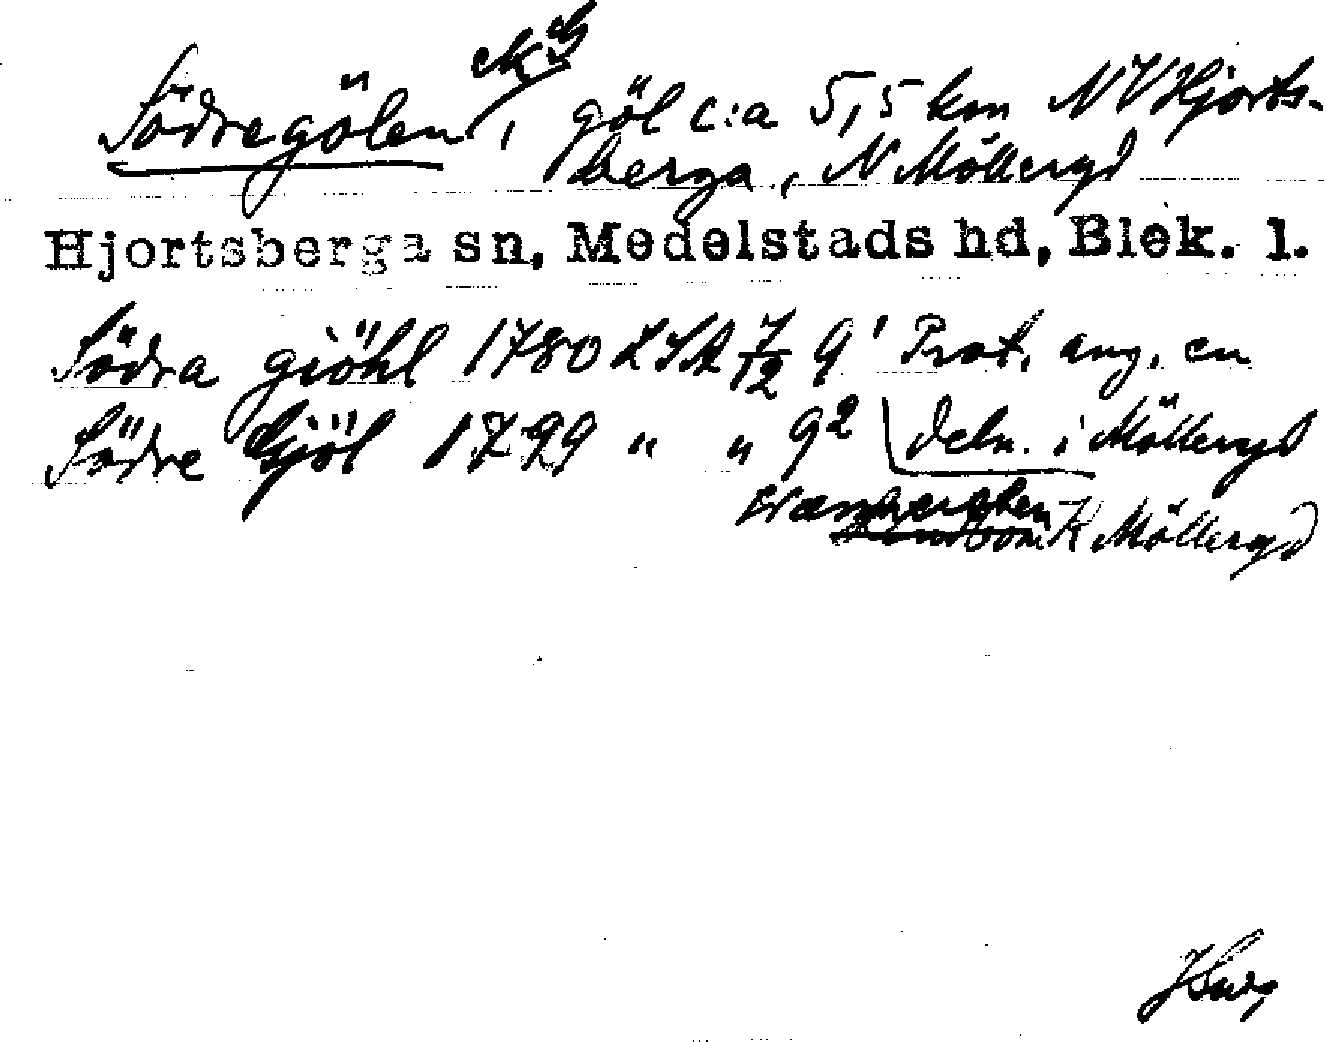 Södregölen, göl c:a 5,5 km NV Hjorts-
berga, N Möllergd
Hjortsberga sn, Medelstads hd, Blek. l.
Södra giöhl 1780 LSA 7/12 9¹ Prot. ang. en
Södre Gjöl 1799 " " 9² deln. i Möllergd
K Möllergd